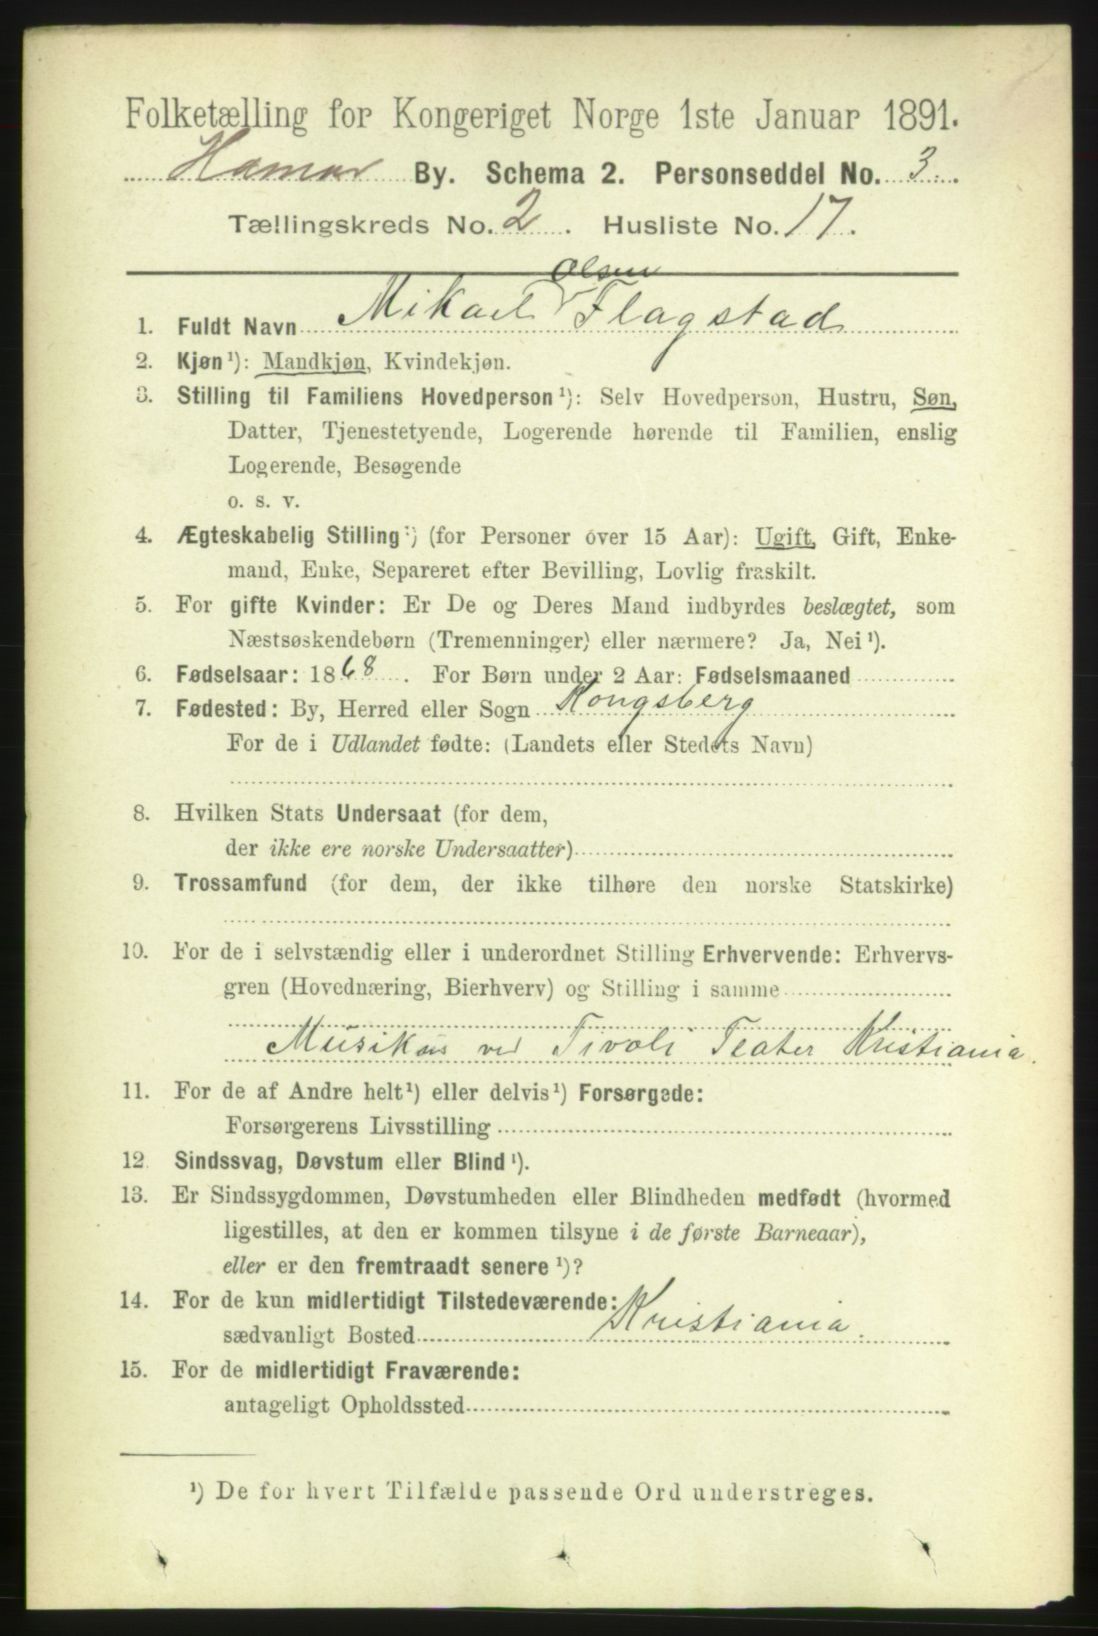 Folketælling for Kongeriget Norge 1ste Januar 1891.
Hamar By. Schema 2. Personseddel No. 3.
Tællingskreds No. 2. Husliste No. 17.
Olsen
1. Fuldt Navn Mikael Flagstad
2. Kjøn¹): Mandkjøn, Kvindekjøn.
3. Stilling til Familiens Hovedperson¹): Selv Hovedperson, Hustru, Søn,
Datter, Tjenestetyende, Logerende hørende til Familien, enslig
Logerende, Besøgende
o. s. v.
4. Ægteskabelig Stilling¹) (for Personer over 15 Aar): Ugift, Gift, Enke-
mand, Enke, Separeret efter Bevilling, Lovlig fraskilt.
5. For gifte Kvinder: Er De og Deres Mand indbyrdes beslægtet, som
Næstsøskendebørn (Tremenninger) eller nærmere? Ja, Nei¹).
6. Fødselsaar: 1868. For Børn under 2 Aar: Fødselsmaaned
7. Fødested: By, Herred eller Sogn Kongsberg
For de i Udlandet fødte: (Landets eller Stedets Navn)
8. Hvilken Stats Undersaat (for dem,
der ikke ere norske Undersaatter)
9. Trossamfund (for dem, der ikke tilhøre den norske Statskirke)
10. For de i selvstændig eller i underordnet Stilling Erhvervende: Erhvervs-
gren (Hovednæring, Bierhverv) og Stilling i samme
Musikus ved Tivoli Teater Kristiania.
11. For de af Andre helt¹) eller delvis¹) Forsørgede:
Forsørgerens Livsstilling
12. Sindssvag, Døvstum eller Blind¹).
13. Er Sindssygdommen, Døvstumheden eller Blindheden medfødt (hvormed
ligestilles, at den er kommen tilsyne i de første Barneaar),
eller er den fremtraadt senere¹)?
14. For de kun midlertidigt Tilstedeværende:
sædvanligt Bosted Kristiania.
15. For de midlertidigt Fraværende:
antageligt Opholdssted
¹) De for hvert Tilfælde passende Ord understreges.